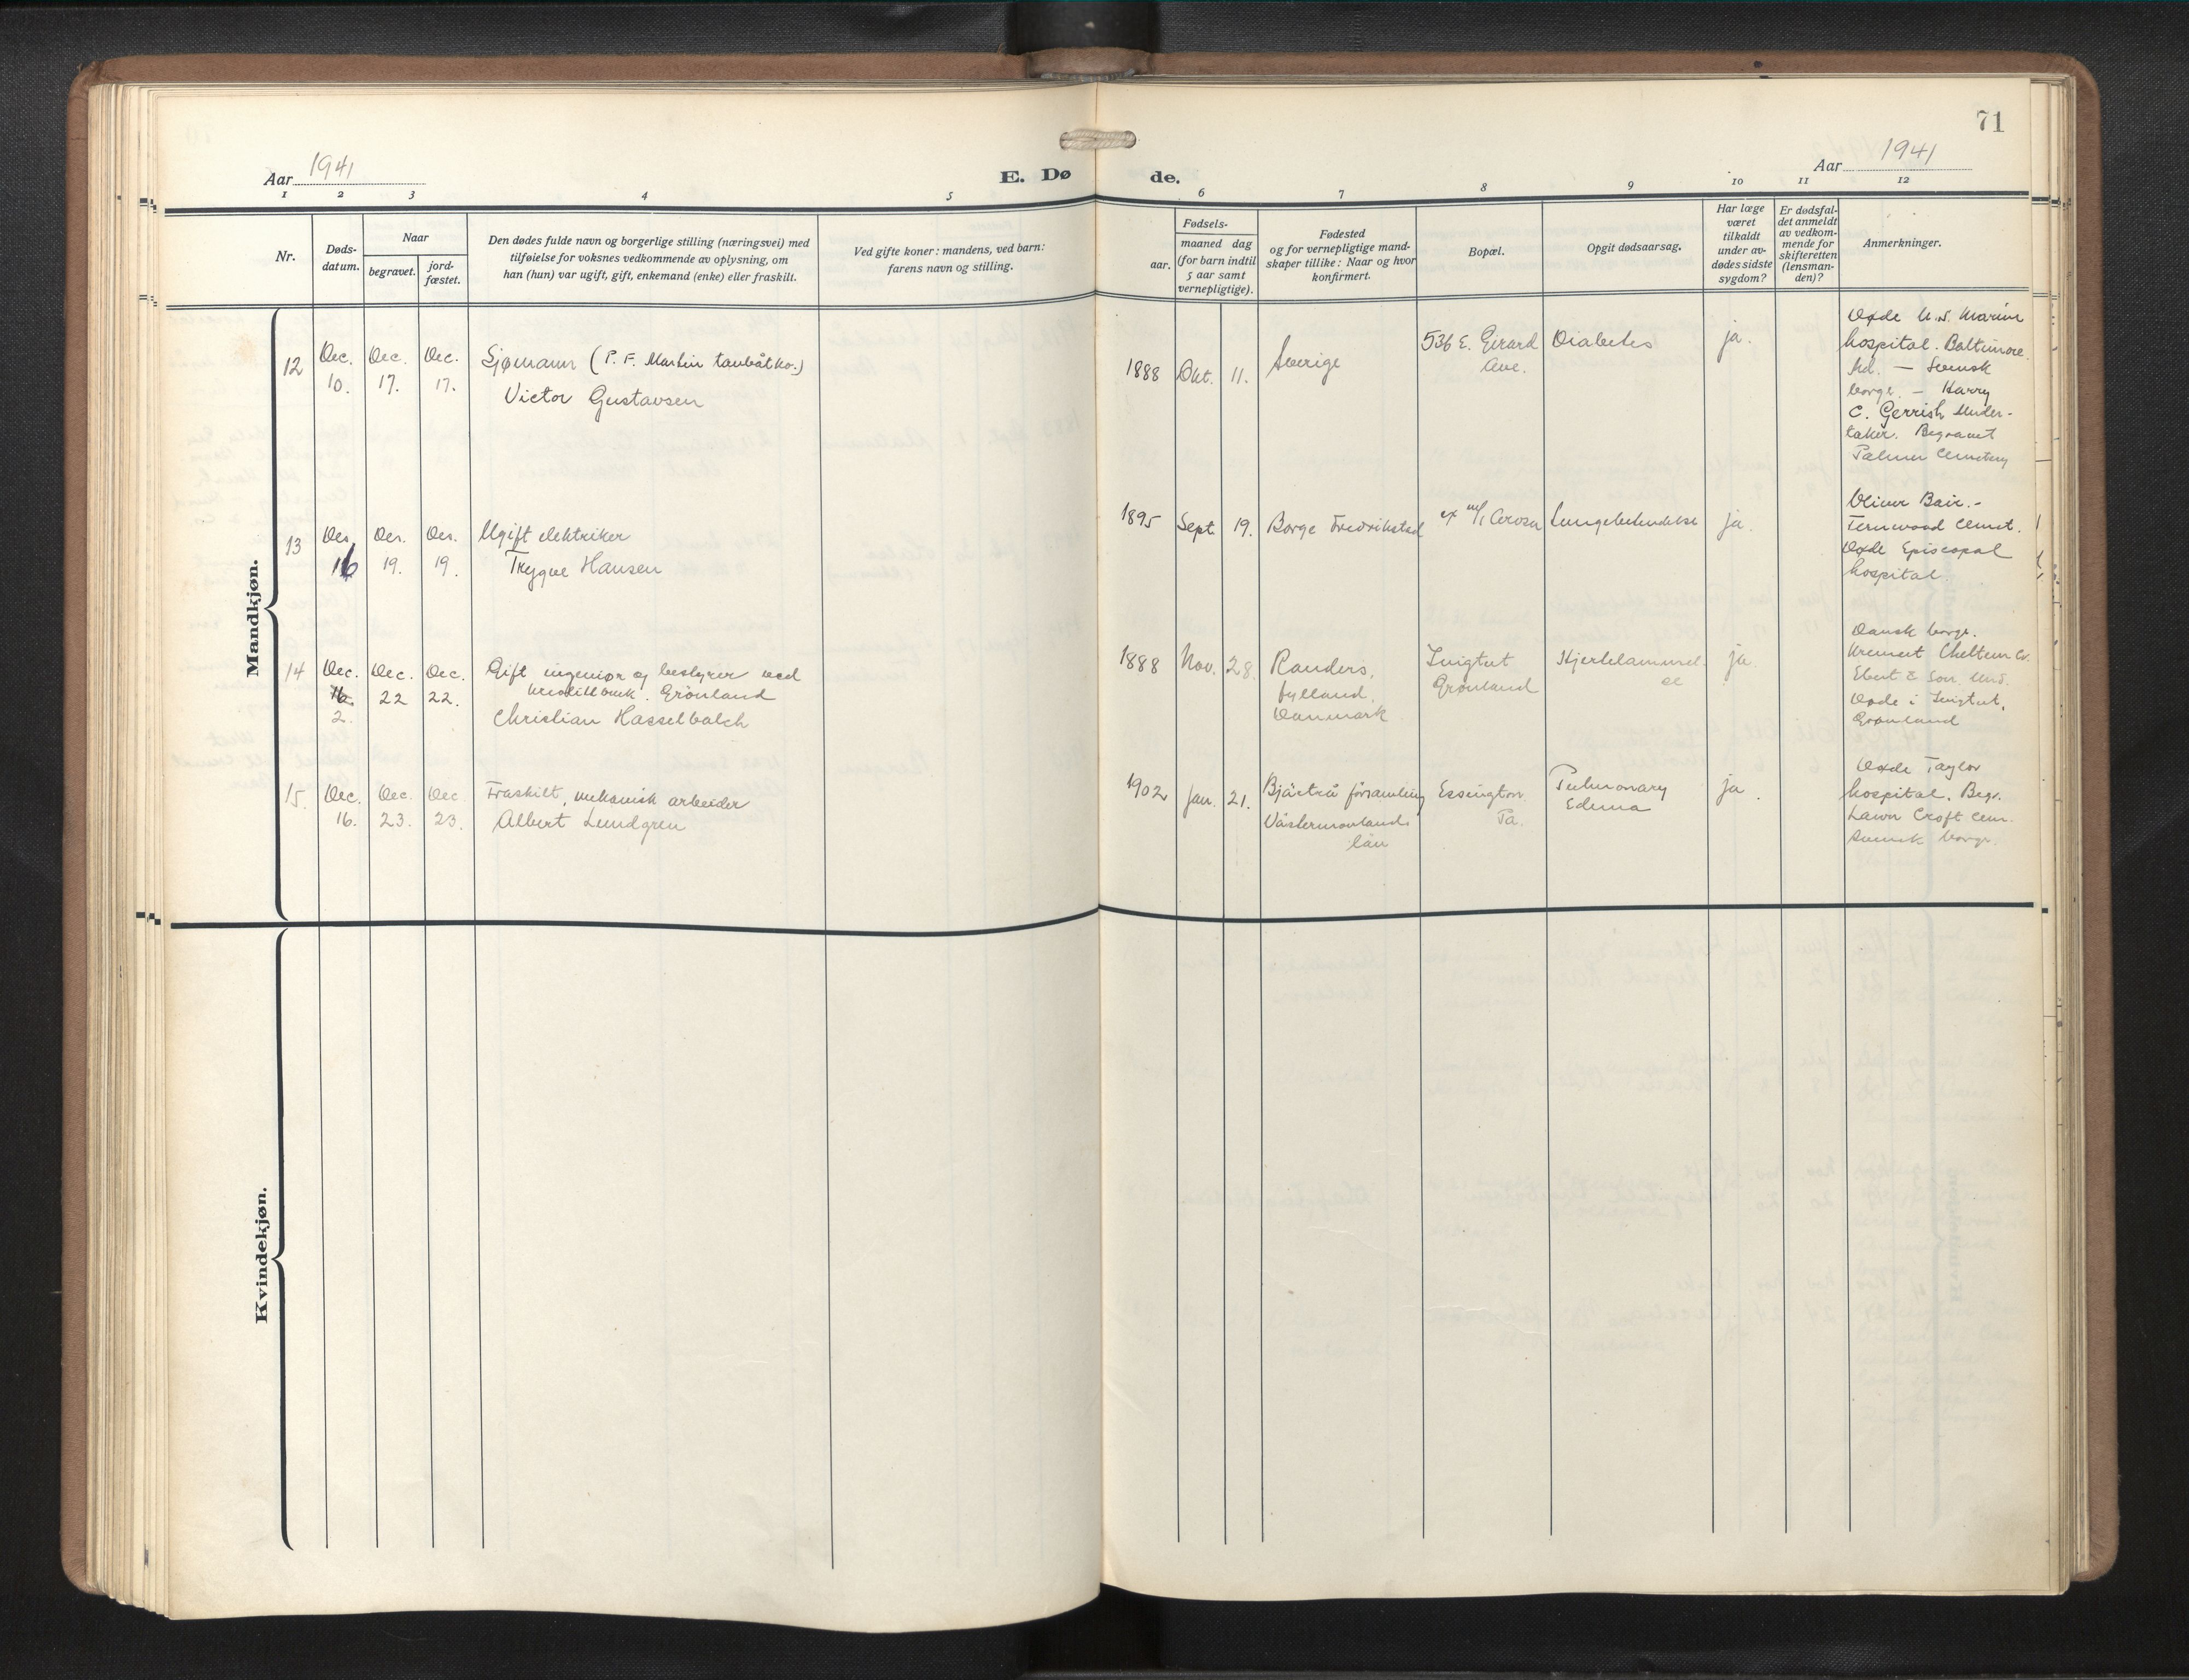 71
Aar 1941
E. Døde.
Aar 1941
1 2 3 4 5 6 7 8 9 10 11 12
Nr.
Døds-
datum.
Naar
begravet.
jord-
fæstet.
Den dødes fulde navn og borgerlige stilling (næringsvei) med
tilføielse for voksnes vedkommende av oplysning, om
han (hun) var ugift, gift, enkemand (enke) eller fraskilt.
Ved gifte koner: mandens, ved barn:
farens navn og stilling.
Fødsels-
aar.
maaned dag
(for barn indtil
5 aar samt
vernepligtige).
Fødested
og for vernepligtige mand-
skaper tillike: Naar og hvor
konfirmert.
Bopæl.
Opgit dødsaarsag.
Har læge
været
tilkaldt
under av-
dødes sidste
sygdom?
Er dødsfal-
det anmeldt
av vedkom-
mende for
skifteretten
(lensman-
den)?
Anmerkninger.
Mandkjøn.
12
Dec.
10.
Dec.
17.
Dec.
17.
Sjømann (P. F. Martin taubåtko.)
Victor Gustavsen
1888 Okt. 11.
Sverige
536 E. Girard
Ave.
Diabetes
ja.
Døde U.S. Marine
hospital. Baltimore
Md. — Svensk
borge. — Harry
C. Gerrish Under-
taker. Begravet
Palmer Cemetery
13
Des.
16
Des.
19.
Des.
19.
Ugift elektriker
Trygve Hansen
1895 Sept. 19.
Borge Fredrikstad
ex m/s
Lungebetendelse
ja.
Oliver Bair.-
Fernwood Cemet.
Døde Episcopal
hospital.
14
Dec.
16.
2.
Dec.
22
Dec.
22.
Gift ingeniør og bestyrer ved
Grønland
Christian Hasselbalch
1888 Nov. 28.
Randers,
Jylland.
Danmark
Ivigtut
Grønland
Hjertelammel
se
ja.
Dansk borge.
Kremert Chelten
Ebert & Son, Und.
Døde i Ivigtut,
Grønland
15.
Dec.
16.
Dec.
23.
Dec.
23.
Fraskilt, mekanisk arbeider
Albert Lundgren
1902 Jan. 21.
Bjärtrå församling
Västernorrlands
län
Essington
Pa.
Pulmonary
Edema
ja.
Døde Taylor
hospital. Begr.
Lawn Croft Cem.
Svensk borge.
Kvindekjøn.